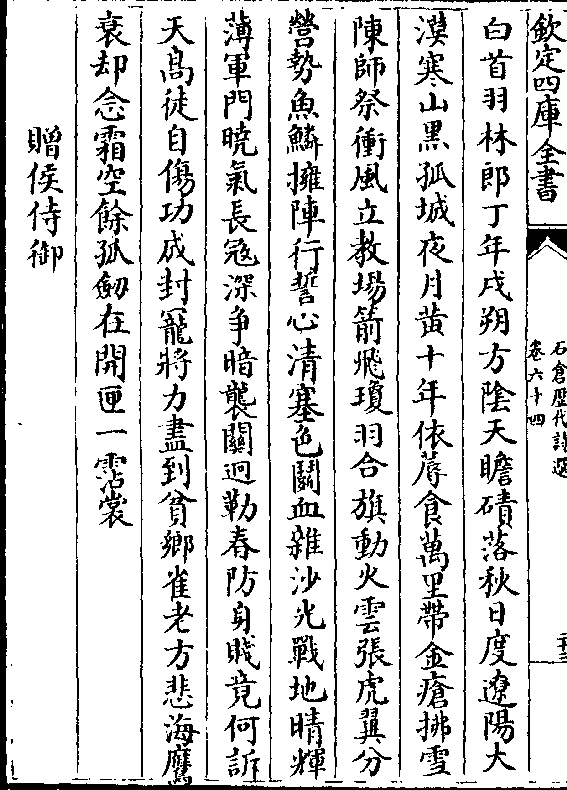 欽定四庫全書
石倉歷代詩選
卷六十四
白首羽林郎丁年戍朔方陰天瞻磧落秋日度遼陽大
漠寒山黑孤城夜月黃十年依蓐食萬里帶金瘡拂雪
陳師祭衝風立教場箭飛瓊羽合旗動火雲張虎翼分
營勢魚鱗擁陣行誓心清塞色鬬血雜沙光戰地晴輝
薄軍門曉氣長冦深爭暗襲關迥勒春防身賤竟何訴
天髙徒自傷功成封寵將力盡到貧鄉雀老方悲海鷹
衰却念霜空餘孤劒在開匣一霑裳
贈侯侍御